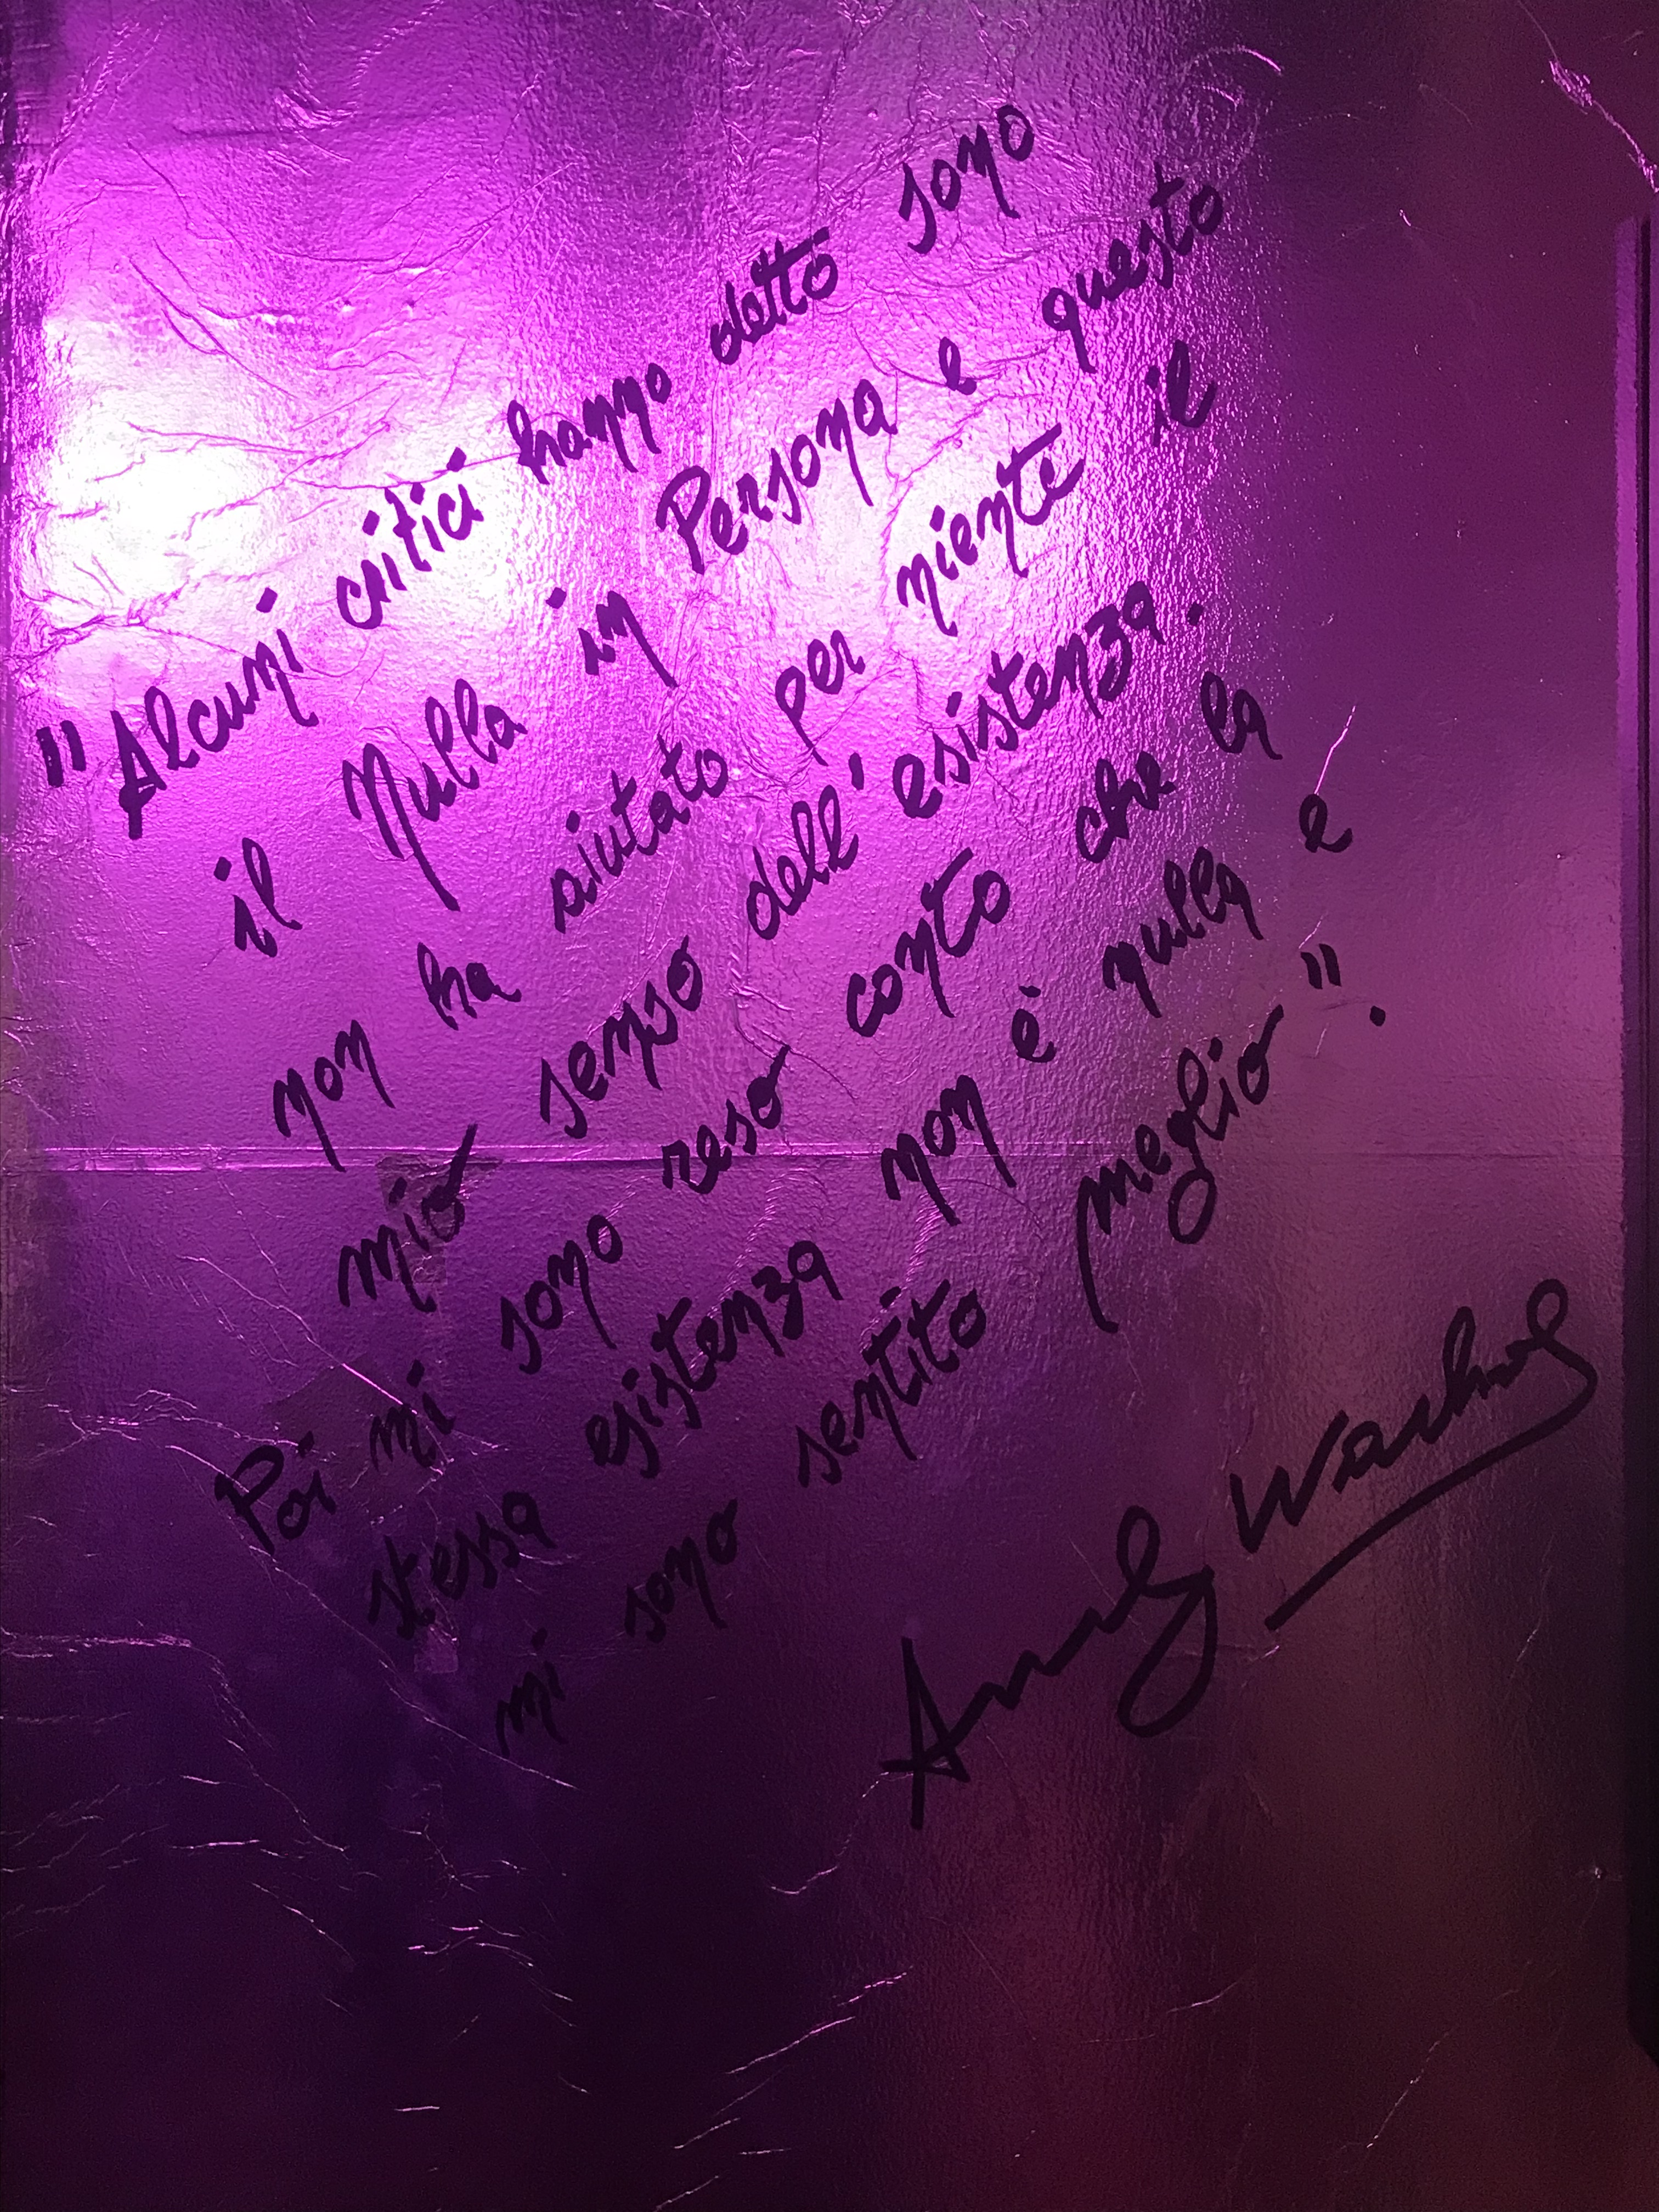 "Alcuni critici hanno detto sono
il Nulla in Persona e questo
non ha aiutato per niente il
mio senso dell'esistenza.
Poi mi sono reso conto che la
stessa esistenza non è nulla e
mi sono sentito meglio".
Andy Warhol